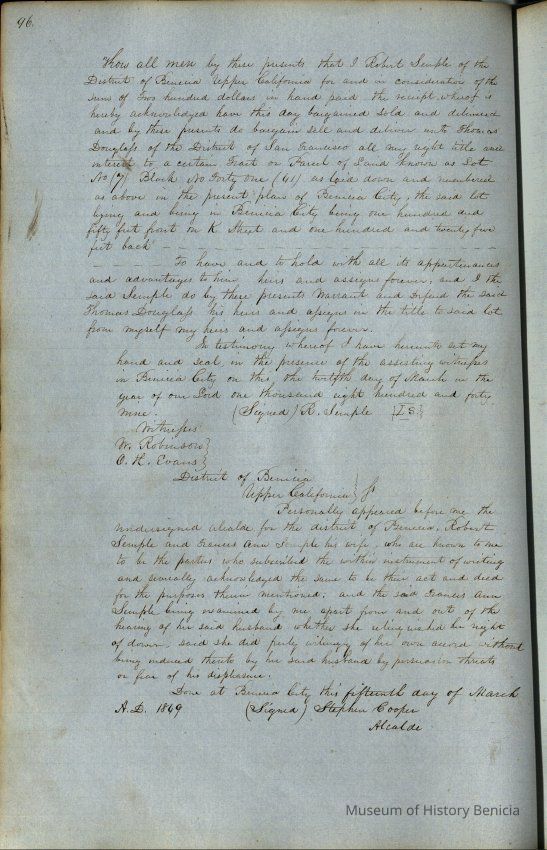 96.
Know all men by these presents that I Robert Semple of the
District of Benicia Upper California for and in consideration of the
sum of Two hundred dollars in hand paid the receipt whereof is
hereby acknowledged have this day bargained Sold and delivered
and by these presents do bargain Sell and deliver unto Thomas
Douglass of the District of San Francisco all my right title and
interest to a certain Tract or Parcel of Land known as Lot
No (7) Block No Forty one (41) as laid down and numbered
as above in the present plan of Benicia City, the said lot
lying and being in Benicia City being one hundred and
fifty feet front on K Street and one hundred and twenty five
feet back
To have and to hold with all its appurtenances
and advantages to him heirs and assigns forever, and I the
said Semple do by these presents Warrant and Defend the said
Thomas Douglass his heirs and assigns in the title to said lot
from myself my heirs and assigns forever.
In testimony whereof I have hereunto set my
hand and seal in the presence of the assisting witnesses
in Benicia City on this the twelfth day of March in the
year of our Lord one thousand eight hundred and forty
nine. (Signed) R. Semple {L.S.}
Witnesses
W. Robinson}
O. H. Evans}
District of Benicia
Upper California}
Personally appeared before me the
undersigned alcalde for the district of Benicia, Robert
Semple and Francis Ann Semple his wife, who are known to me
to be the parties who subscribed the within instrument of writing
and severally acknowledged the same to be their act and deed
for the purposes therein mentioned; and the said Francis Ann
Semple being examined by me apart from and out of the
hearing of her said husband whether she relinquished her right
of dower, said she did freely willingly of her own accord without
being induced thereto by her said husband by persuasion threats
or fear of his displeasure.
Done at Benicia City this fifteenth day of March
A.D. 1849 (Signed) Stephen Cooper
Alcalde
Museum of History Benicia